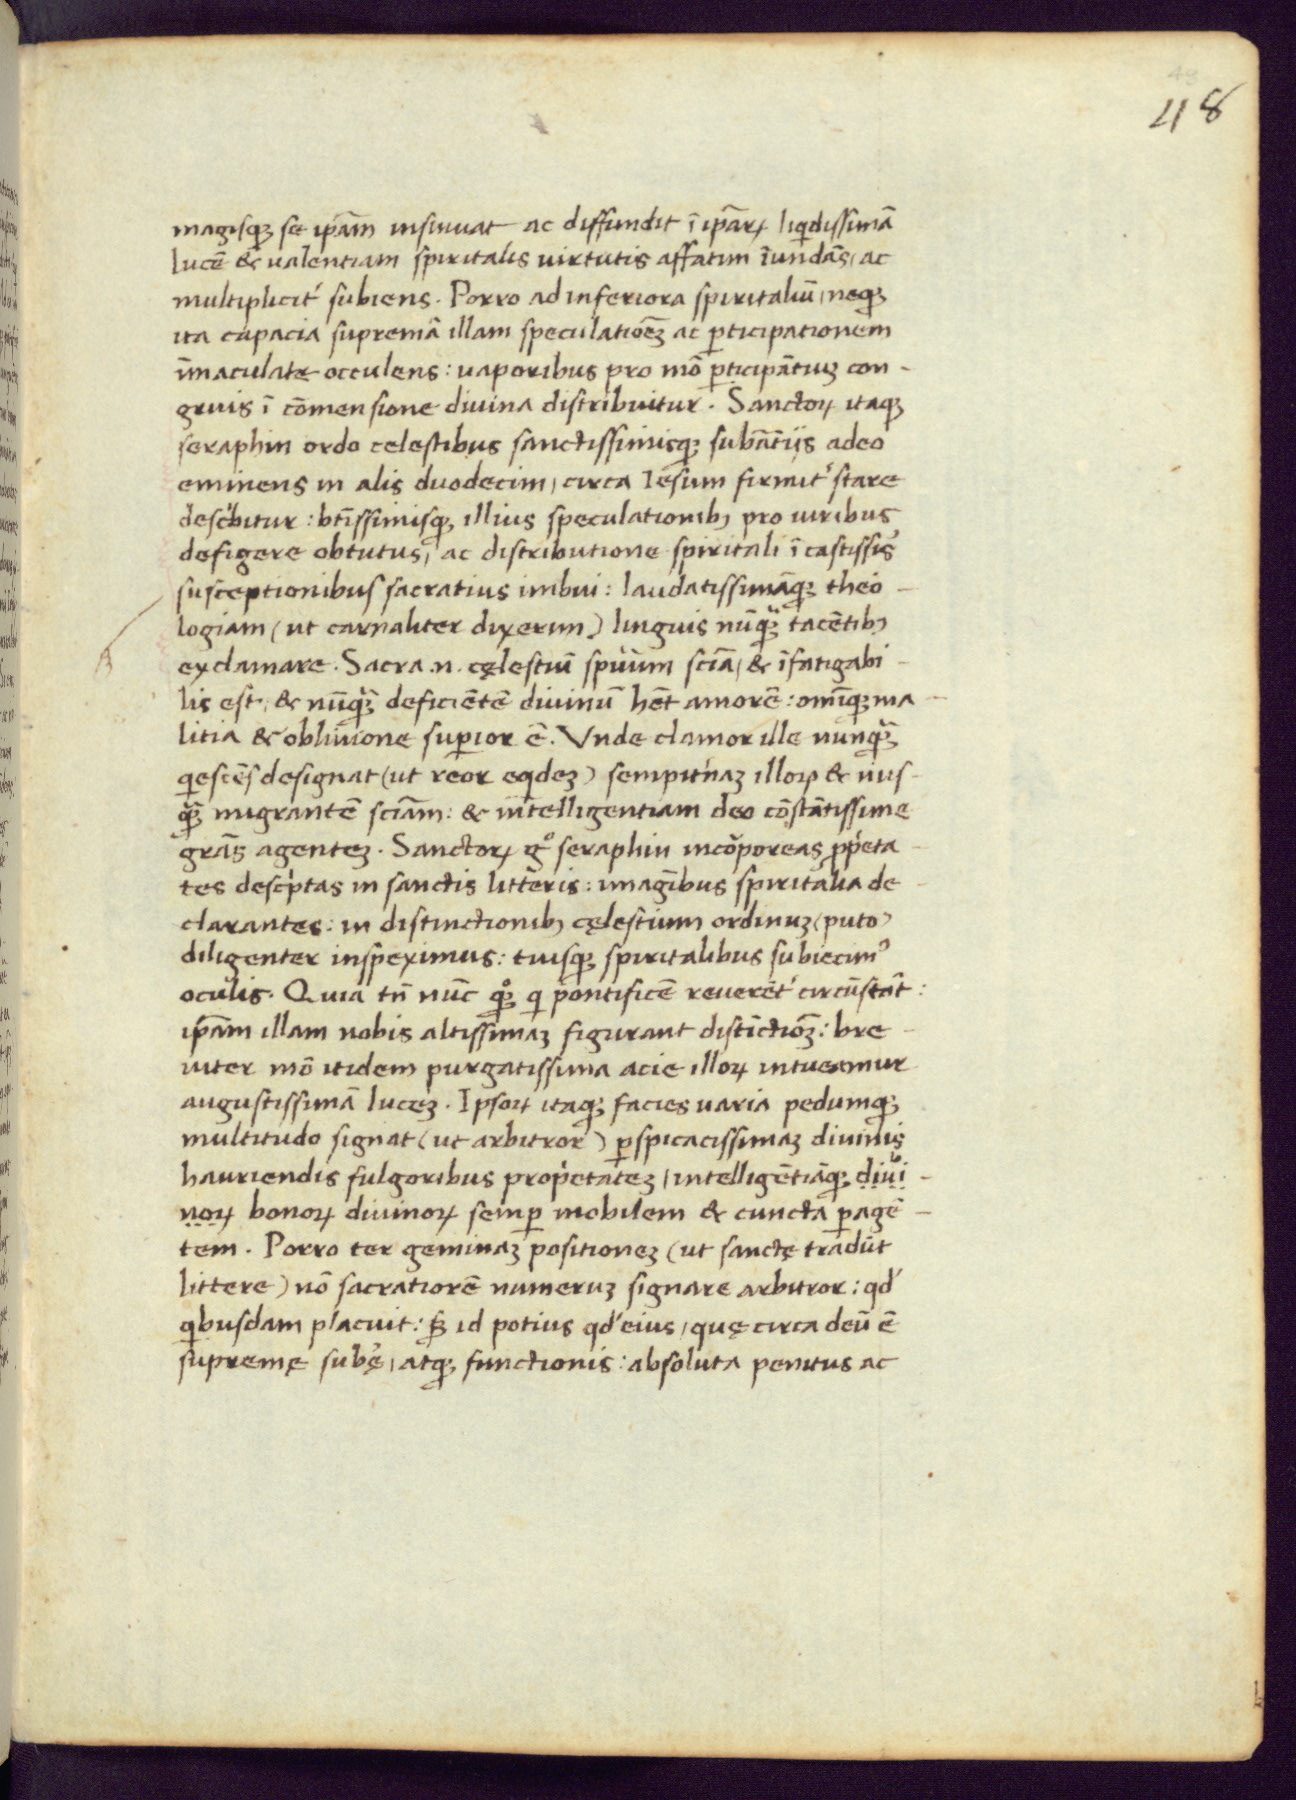 48
magisqꝫ se ip̄am insinuat ac diffundit ī ip̄aꝝ liqͥdissimā
lucē & ualentiam spiritalis uirtutis affatim īundās, ac
multiplicit᾽ subiens. Porro ad inferiora spiritaliū, neqꝫ
ita capacia supremā illam speculatiōeꝫ ac ꝑticipationem
īmaculatę occulens: uaporibus pro mō ꝑticipātiuꝫ con-
gruis ī cōmensione diuina distribuitur. Sanctoꝝ itaqꝫ
seraphin ordo celestibus sanctissimisqꝫ subātijs adeo
eminens in alis duodecim, circa Iesum firmit᾽ stare
descͥbitur: btīssimisqꝫ illius speculationibꝫ pro uiribus
defigere obtutus, ac distributione spiritali ī castissis᾽
susceptionibus sacratius imbui: laudatissimāqꝫ theo-
logiam (ut carnaliter dixerim) linguis nūqꝫᵃ tacētibꝫ
exclamare. Sacra .n. cęlestiū spūum sciā, & īfatigabi-
lis est, & nūqꝫᵃ deficiētē diuinū hēt amorē: omīqꝫ ma-
litia & obliuione suꝑior ē. Vnde clamor ille nunqꝫᵃ
qͥescēs designat (ut reor eqͥdeꝫ) sempit᾽naꝫ illoꝝ & nus-
qꝫᵃ migrantē sciām: & intelligentiam deo cōstātissime
grās agenteꝫ. Sanctoꝝ gͦ seraphin incorporeas ꝓpͥeta-
tes descͥptas in sanctis litteris: imagībus spiritalia de-
clarantes: in distinctionibꝫ cęlestium ordinuꝫ (puto)
diligenter inspeximus: tuisqꝫ spiritalibus subiecimꝰ
oculis. Quia tn̄ nūc qͦꝫ qͥ pontificē reuerēt᾽ circūstāt:
ip̄am illam nobis altissimaꝫ figurant distīctiōꝫ: bre-
uiter mō itidem purgatissima acie illoꝝ intueamur
augustissimā luceꝫ. Ipsoꝝ itaqꝫ facies uaria pedumqꝫ
multitudo signat (ut arbitror) ꝑspicacissimaꝫ diuinis
hauriendis fulgoribus propͥetateꝫ, intelligētiāqꝫ diui-
noꝝ bonoꝝ diuinoꝝ semꝑ mobilem & cuncta ꝑagē-
tem. Porro ter geminaꝫ positioneꝫ (ut sanctę tradūt
littere) nō sacratiorē numeruꝫ signare arbitror: qd᾽
qͥbusdam placuit: sꝫ id potius qd᾽ eius, quę circa deū ē
supremę subę̄, atqꝫ functionis: absoluta penitus ac